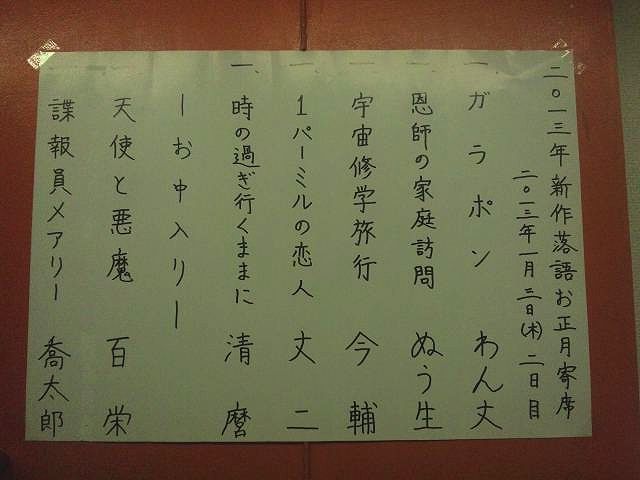 二〇一三年新作落語お正月寄席
二〇一三年一月三日(木)二日目
一、ガラポン わん丈
一、恩師の家庭訪問 ぬう生
一、宇宙修学旅行 今輔
一、1パーミルの恋人 丈二
一、時の過ぎ行くままに 清麿
ーお中入りー
天使と悪魔 百栄
諜報員メアリー 喬太郎